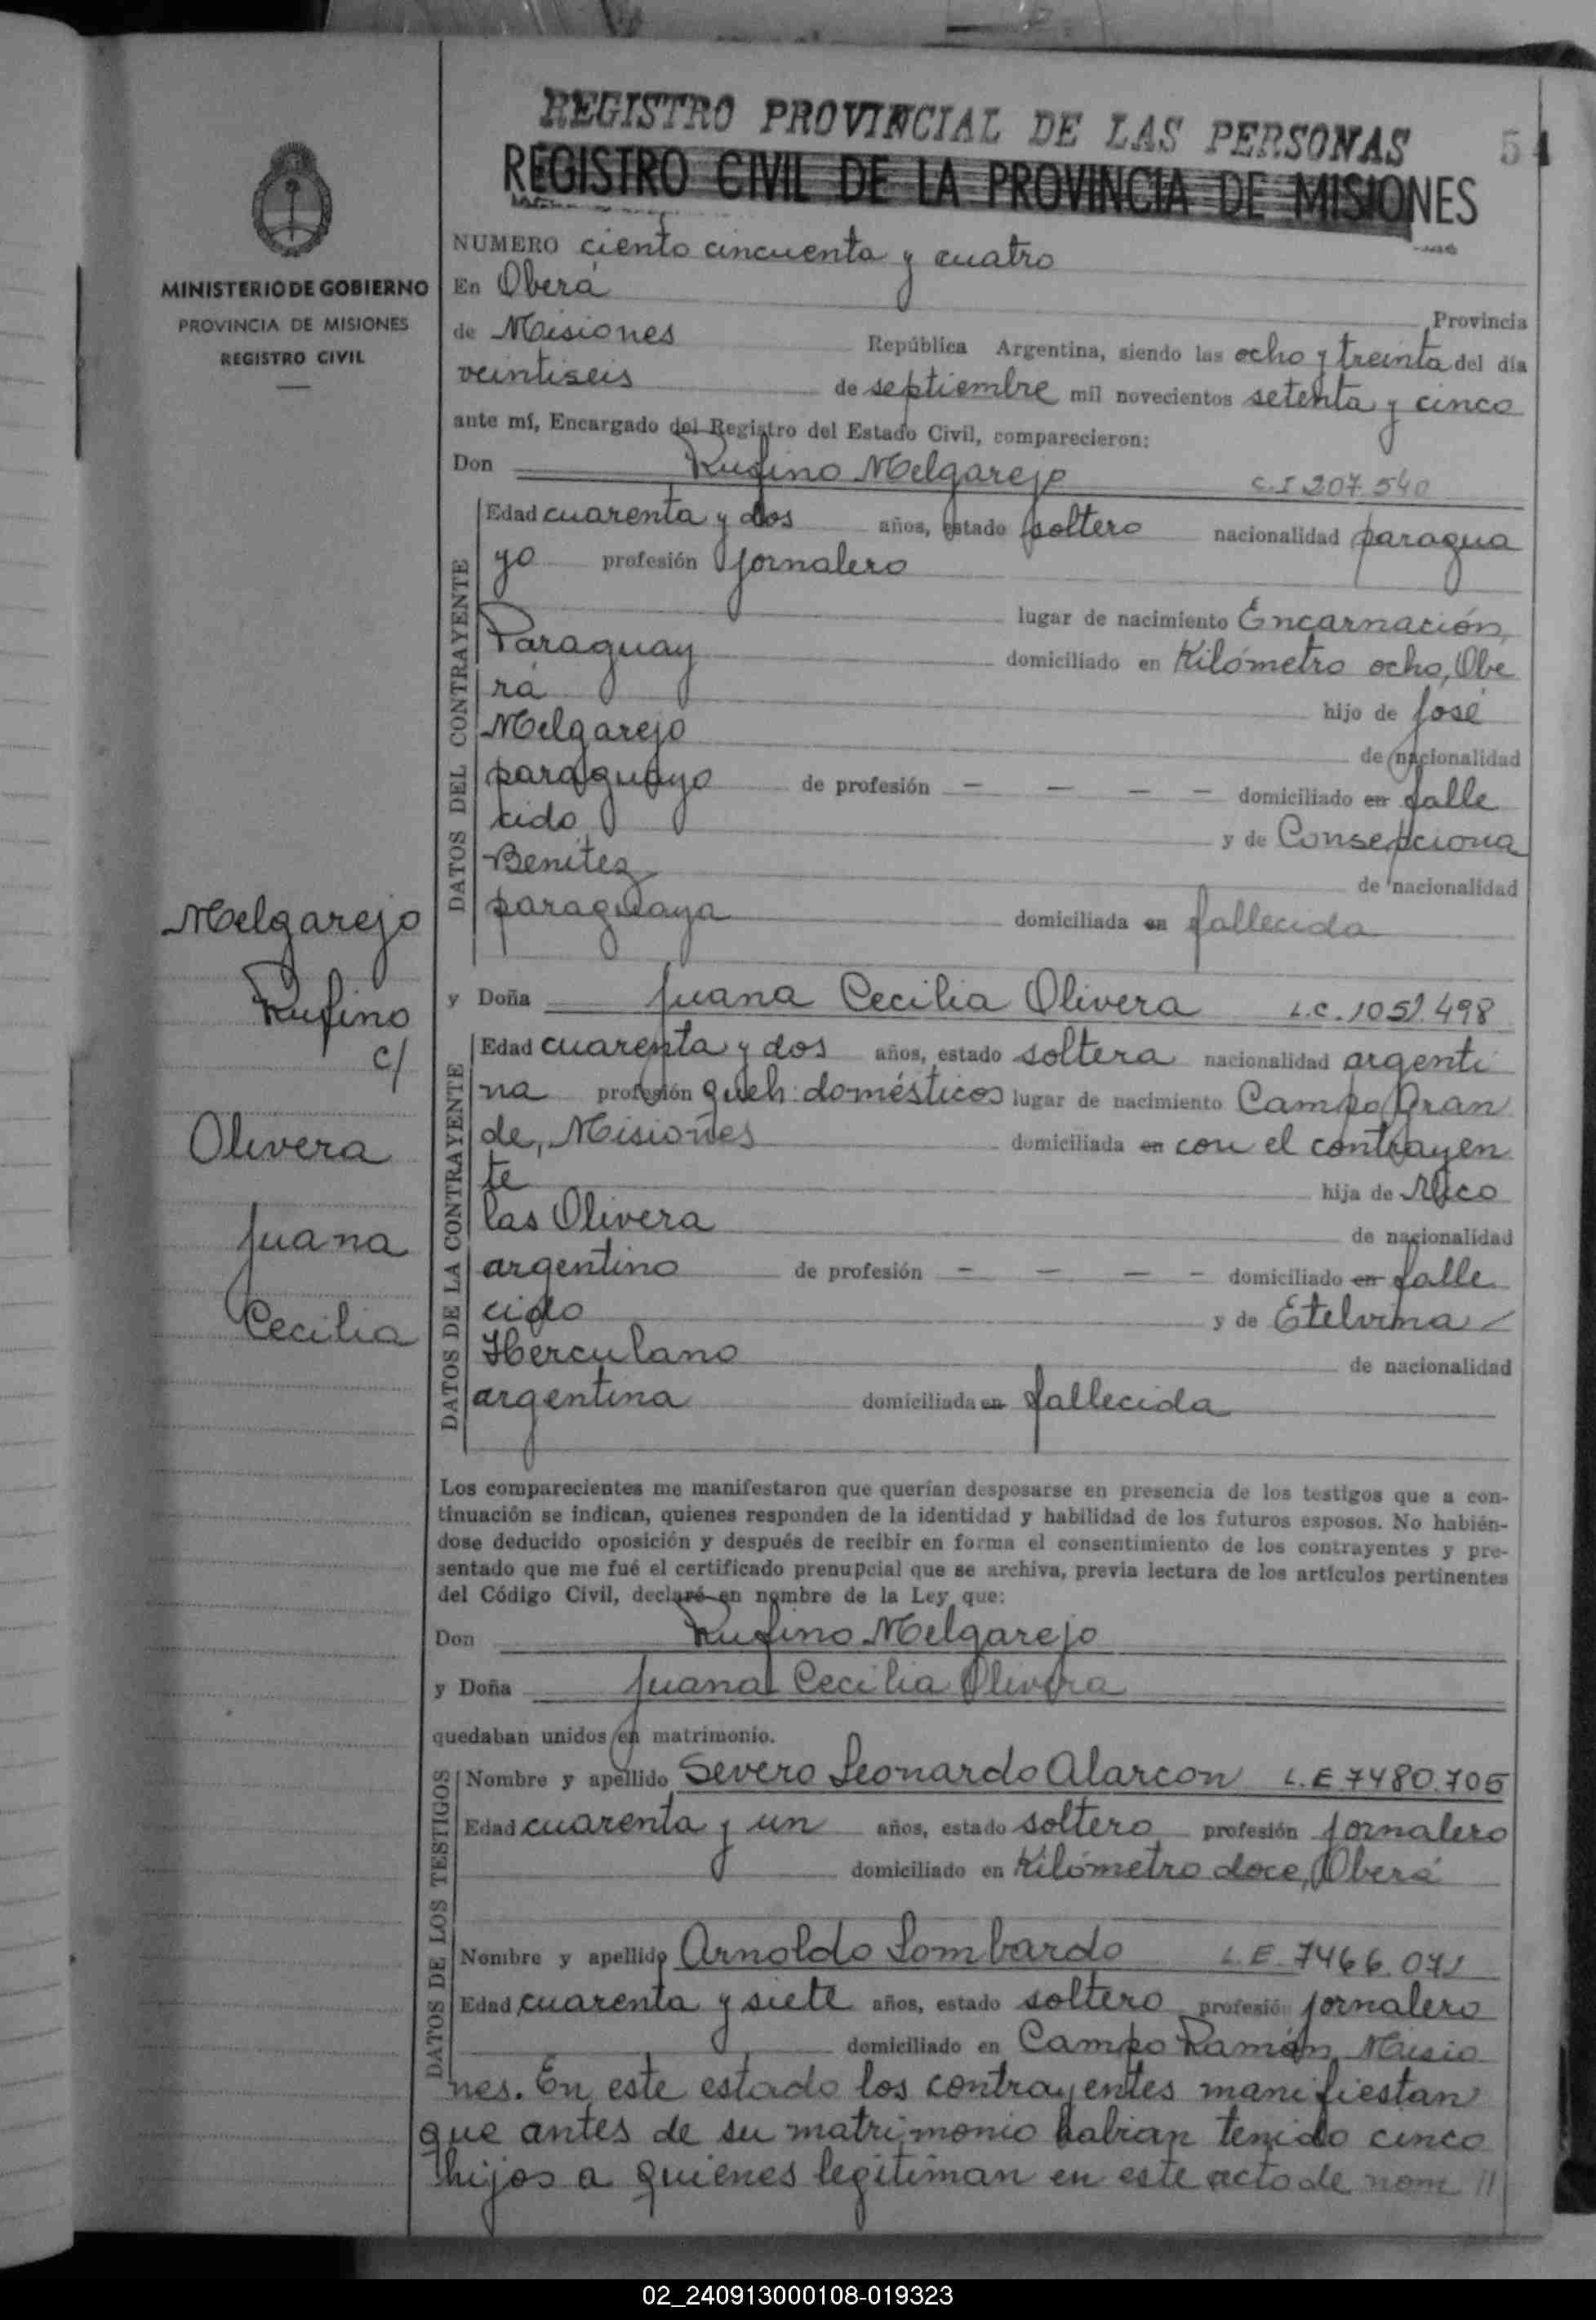 REGISTRO PROVINCIAL DE LAS PERSONAS
54
REGISTRO CIVIL DE LA PROVINCIA DE MISIONES
MINISTERIO DE GOBIERNO
PROVINCIA DE MISIONES
REGISTRO CIVIL
NUMERO ciento cincuenta y cuatro
En Oberá Provincia
de Misiones República Argentina, siendo las ocho y treinta del día
veintiseis de septiembre mil novecientos setenta y cinco
ante mí, Encargado del Registro del Estado Civil, comparecieron:
Don Rufino Melgarejo C.I 207.540
DATOS DEL CONTRAYENTE
Edad cuarenta y dos años, estado soltero nacionalidad paragua
yo profesión jornalero
lugar de nacimiento Encarnación,
Paraguay domiciliado en Kilómetro ocho, Obe
rá hijo de José
Melgarejo de nacionalidad
paraguayo de profesión - - - - domiciliado en falle
cido y de Consepciona
Benítez de nacionalidad
paraguaya domiciliada en fallecida
Melgarejo
Rufino
c/
Olivera
Juana
Cecilia
y Doña Juana Cecilia Olivera L.C. 1051.498
DATOS DE LA CONTRAYENTE
Edad cuarenta y dos años, estado soltera nacionalidad argenti
na profesión queh. domésticos lugar de nacimiento Campo Gran
de, Misiones domiciliada en con el contrayen
te hija de Nico
las Olivera de nacionalidad
argentino de profesión - - - - domiciliado en falle
cido y de Etelvina
Herculano de nacionalidad
argentina domiciliada en fallecida
Los comparecientes me manifestaron que querían desposarse en presencia de los testigos que a con-
tinuación se indican, quienes responden de la identidad y habilidad de los futuros esposos. No habién-
dose deducido oposición y después de recibir en forma el consentimiento de los contrayentes y pre-
sentado que me fué el certificado prenupcial que se archiva, previa lectura de los artículos pertinentes
del Código Civil, declaré en nombre de la Ley que:
Don Rufino Melgarejo
y Doña Juana Cecilia Olivera
quedaban unidos en matrimonio.
DATOS DE LOS TESTIGOS
Nombre y apellido Severo Leonardo Alarcon L.E 7480.705
Edad cuarenta y un años, estado soltero profesión jornalero
domiciliado en Kilómetro doce, Oberá
Nombre y apellido Arnoldo Lombardo L.E. 7466.071
Edad cuarenta y siete años, estado soltero profesión jornalero
domiciliado en Campo Ramón, Misio
nes. En este estado los contrayentes manifiestan
que antes de su matrimonio habian tenido cinco
hijos a quienes legitiman en este acto de nom //
02_240913000108-019323